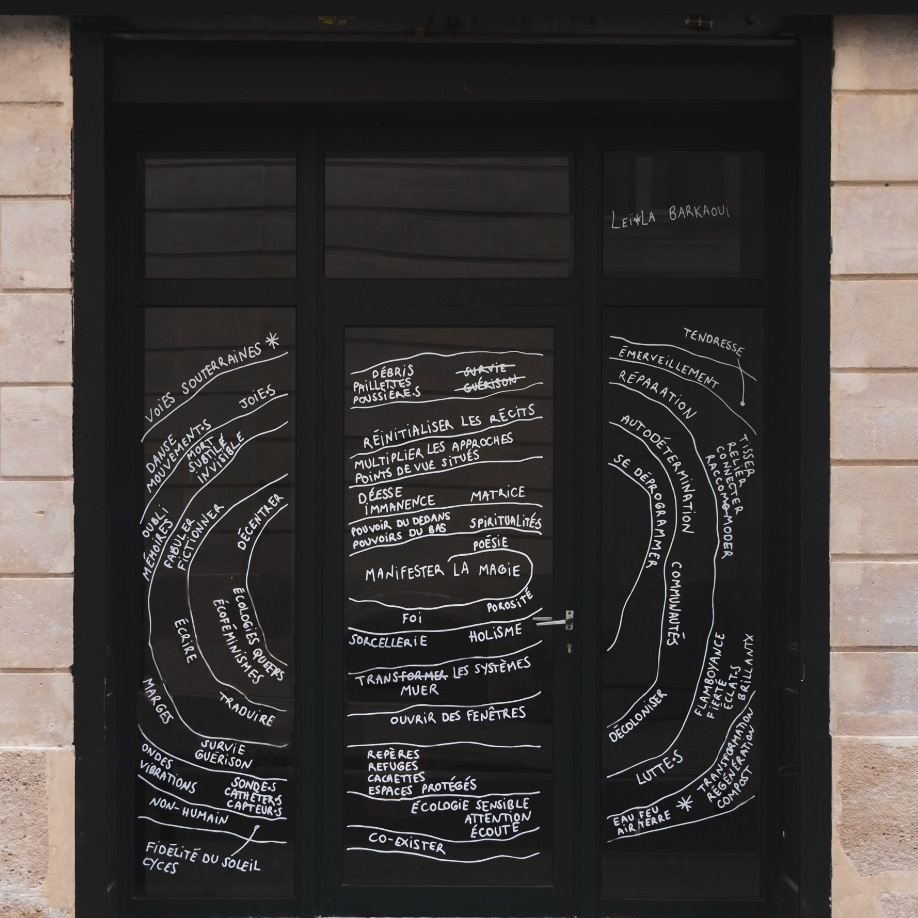 LEÏ*LA BARKAOUI
VOIES SOUTERRAINES *
JOIES
DANSE
MOUVEMENT·S
MORT
SUBTILE
INVISIBLE
OUBLI
MÉMOIRES
FABULER
FICTIONNER
DÉCENTRER
ÉCRIRE
ÉCOLOGIES QUEERS
ÉCOFÉMINISMES
TRADUIRE
MARGES
SURVIE
GUÉRISON
ONDES
VIBRATIONS
SONDE·S
CATHÉTER·S
CAPTEUR·S
NON-HUMAIN
FIDÉLITÉ DU SOLEIL
CYCES
DÉBRIS
PAILLETTES
POUSSIÈRE·S
SURVIE
GUÉRISON
RÉINITIALISER LES RÉCITS
MULTIPLIER LES APPROCHES
POINTS DE VUE SITUÉS
DÉESSE
IMMANENCE
MATRICE
POUVOIR DU DEDANS
POUVOIRS DU BAS
SPIRITUALITÉS
POÉSIE
MANIFESTER LA MAGIE
POROSITÉ
FOI
SORCELLERIE
HOLISME
TRANSFORMER LES SYSTÈMES
MUER
OUVRIR DES FENÊTRES
REPÈRES
REFUGES
CACHETTES
ESPACES PROTÉGÉS
ÉCOLOGIE SENSIBLE
ATTENTION
ÉCOUTE
CO-EXISTER
TENDRESSE
ÉMERVEILLEMENT
RÉPARATION
AUTODÉTERMINATION
SE DÉPROGRAMMER
TISSER
RELIER
CONNECTER
RACCOMMODER
COMMUNAUTÉS
DÉCOLONISER
LUTTE·S
FLAMBOYANCE
FIERTÉ
ÉCLAT·S
BRILLANTX
EAU FEU
AIR TERRE
*
TRANSFORMATION
RÉGÉNÉRATION
COMPOST